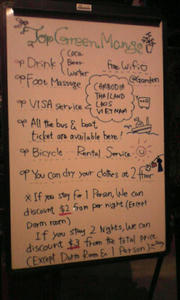 Top Green Mango
Drink { Coca
Beer
Water
free Wifi
@Garden
Foot Massage
VISA service
CAMBODIA
THAILAND
LAOS
VIETNAM
All the bus & boat
ticket are available here!
Bicycle Rental Service
You can dry your clothes at 2 floor
※ If you stay for 1 Person, We can
discount $2 from per night (Except
Dorm room)
If you stay 2 Nights, We can
discount $3 from the total price
(Except Dorm Room & 1 Person)